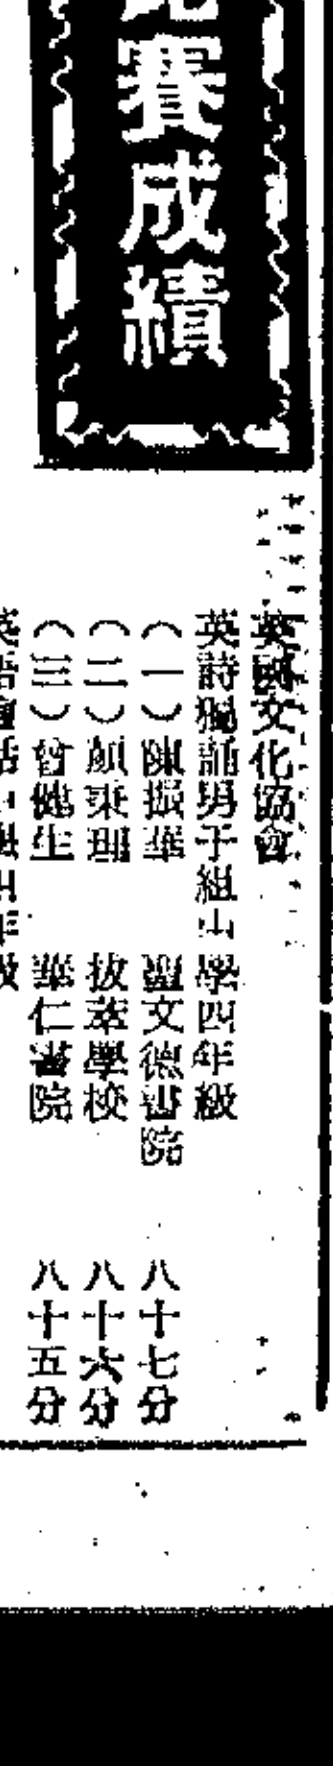 比賽成績
英國文化協會
英詩獨誦男子組中學四年級
（一）陳振華　聖文德書院　八十七分
（二）顧秉理　拔萃學校　八十六分
（三）曾健生　華仁書院　八十五分